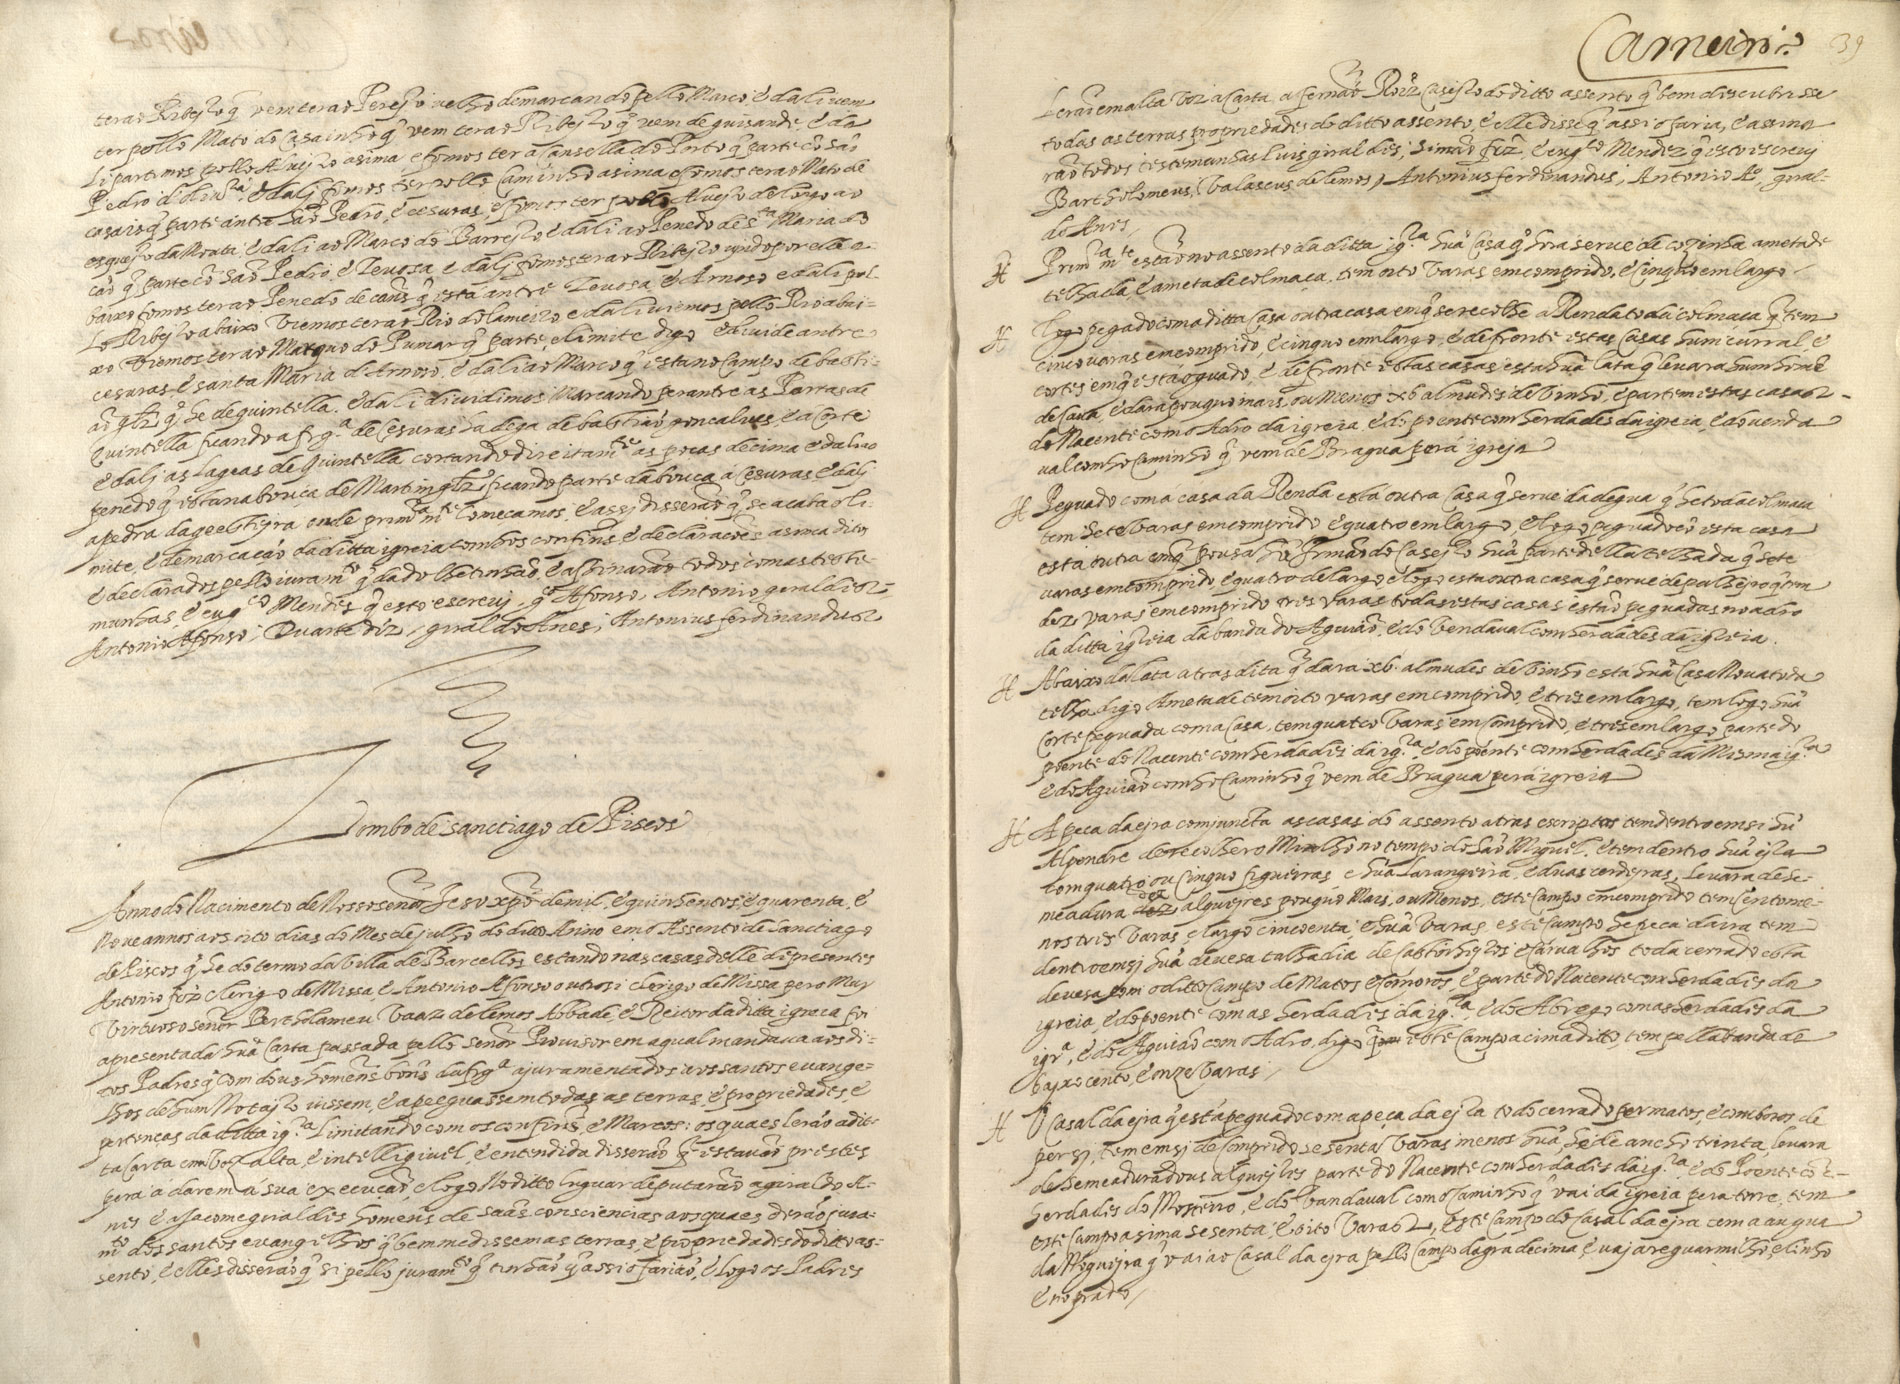 ter ao Ribejro q̃ vem ter ao Perejro velho demarcando pello Marco é dali vem
ter pollo Mato do Casainho q̃ vem ter ao Ribejro q̃ vem de guisande, é da
li partimos pollo asima e fomos ter a Cansella do Porto q̃ parte cõ são
Pedro é dalj fomos ter pollo Caminho asima e fomos ter ao Mato de
q̃ parte antre são Pedro, é cesuras, é fomos ter pollo de longo ao
da Mouta, é dali ao Marco do Barrejro é dali ao Penedo de sta Maria do
cão q̃ parte cõ são Pedro, é Tevosa, é dalj fomos ter ao Ribejro por elle a
baixo fomos ter ao Penedo de q̃ está antre Tevosa, é Arnoso e dali pol
lo Ribejro abaixo viemos ter ao Rio do lameiro e dali viemos pello Rio abai-
xo viemos ter ao do Pumar q̃ parte, e limite digo é divide antre
cesuras, é santa Maria d Arnoso, é dali ao Marco q̃ está no Campo de basti-
ão glz q̃ he de quintella. é dali dividimos Marcando perante as Portas de
quintella ficando a frg.ª de Cesuras a adega de bastião goncalves, é a Corte
é dalj as lageas de quintella cortando direitamte as pocas de cima é dahi ao
penedo q̃ está na bouca de Martim glz, ficando parte da bouca a Cesuras é dalj
a pedra da onde primramte Comecamos, é assj disserão q̃ se acata o li-
mite, é demarcacão da ditta igreia com hos confins, é declaracões asima ditos
é declarados pello iuramto q̃ dado lhe tinhão, é assinarão todos com as teste-
munhas, é eu gco Mendes q̃ esto escrevj. gº Afonso. Antonio geraldis
Antonio Afonso, Duarte diz, gral do Anes, Antonius ferdinandus
Tombo de sanctiago de Piscos
Anno do Nacimento de Nosso senõr Jesu xpõ de mil, é quinhentos, é quarenta, é
Nove annos aos oito dias do Mes de julho do ditto Anno em o Assento de Sanctiago
de Piscos q̃ he do termo da villa de Barcellos estando nas casas delle di presentes
Antonio frz clerigo de Missa, é Antonio Afonso outrosi clerigo de Missa pero Muj
Virtuoso senõr Bertholameu Vaaz de lemos Abbade, é Reitor da ditta igreia foi
apresentada huã Carta passada pello senõr Provisor em a qual mandava aos di-
tos Padres q̃ com dous homens bõns da frgª ajuramentados aos santos evange-
lhos de hum Notajro vissem, é apeguassem todas as terras, é propriedades, é
pertencas da ditta igrª limitando com os confins, é Marcos: os quaes lerão a dit-
ta Carta em voz alta, é intelligivel, é entendida disserão q̃ estavão prestes
pera a darem á sua execucão é logo No ditto luguar deputarão a giral do A-
nes é a Jacome giraldes homens de saãs consciencias aos quaes derão jura-
mto dos santos evangelhos q̃ bem medissem as terras, é propriedades do ditto as-
sento, é elles disserão q̃ si pello juramto q̃ tinhão q̃ assi o farião, é logo os Padres
Carneiro 39
lerão em alta voz a Carta, a fernão Roiz Casejro do ditto assento q̃ bem discubrisse
todas as terras, propriedades do ditto assento, é elle disse q̃ assi o faria, é assina
rão todos testemunhas Luis giral dis, simão frz, é eu gco Mendez q̃ isto escrevj
Bartholomeus, Valascus de lemos, Antonius ferdinandus, Antonio Aº, giral-
do Anes,
Primramte está no assento da ditta igrª huã Casa q̃ hora serve de cozinha ametade
telhada, é ametade colmaca, tem oito varas em comprido, é cinquo em largo
logo pegado com a ditta Casa outra casa em q̃ se recolhe a Renda toda colmaca q̃ tem
cinco varas em comprido, é cinquo em largo, é defronte estas Casas hum curral é
cortes em q̃ está o guado, é defronte estas casas esta huã lata q̃ levara hum homẽ
de cava, é dara pouquo mais, ou Menos xb almudes de vinho, é partem estas casas
do Nacente com o Adro da igreia, é do poente com herdades da igreia, é do venda
val com ho Caminho q̃ vem de Bragua pera igreja
Peguado com a casa da Renda está outra Casa q̃ serve da degua q̃ he toda colmaca
tem sete varas em comprido é quatro em largo é logo peguado cõ esta casa
está outra em q̃ pousa hũ Irmão do Casejro huã parte della telhada q̃ sete
varas em comprido, é quatro de largo é logo esta outra casa q̃ serve de q̃ tem
dez varas em comprido tres varas todas estas casas estão peguadas no adro
da ditta igreia da banda do Aguião, é do vendaval com herdades da igreia.
Abaixo da lata atras dita q̃ dara xb almudes de vinho esta huã Casa Nova toda
telhada digo Ametade tem oito varas em comprido, é tres em largo, tem logo huã
Corte peguada com a Casa, tem quatro varas em Comprido, é tres em largo parte do
poente do Nacente com herdades da igrª é do poente com herdades da Mesma igrª
é do Aguião com ho Caminho q̃ vem de Bragua pera igreia
A peca da ejra comjuncta as casas do assento atras escriptas tem dentro em si hũ
Alpendre de recolher o Milho no tempo de são Miguel. é tem dentro huã ejra
com quatro, ou Cinquo figueiras e huã larangeira, é duas cerdeiras, levara de se-
meadura dez alquejres pouquo Mais, ou Menos, este campo em comprido tem Cento me-
nos tres varas, é largo cincoenta, é huã varas este Campo he peca da ira tem
dentro em sj huã devesa talhadia de e carvalhos toda cerrado esta
devesa com o ditto Campo de Matos e Comoros, é parte do Nacente com herdades da
igreia, é do poente com as herdades da igrª é do Abrego com as herdades da
igrª, é do Aguião com o Adro, digo este campo acima ditto, tem pella banda de
baixo cento, é onze varas
O Casal da ejra q̃ está peguado com a peça da ejra todo cerrado per matos, é comoros de
per sj, tem em si de Comprido sesenta varas menos huã, he de ancho trinta, levara
de semeadura dous alquejres parte do Nacente com herdades da igrª é do Poente cõ
herdades do Mosteiro, é do vandaval com o Caminho q̃ vai da igreia pera torre, tem
este campo asima sesenta, é oito varas, este Campo do Casal da ejra tem a augua
da Noguejra q̃ vai ao Casal da ejra pello Campo da gra de cima, é vaj a reguar milho, é linho
é no prado